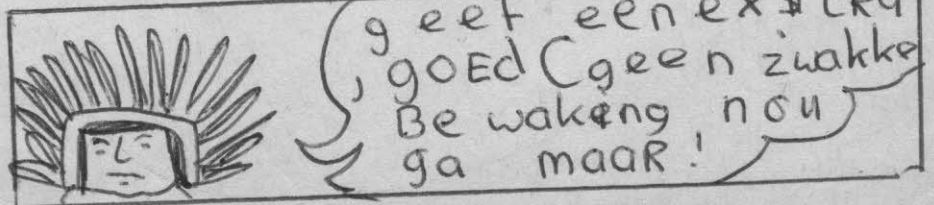 geef een
, goEd (geen zwakke
Bewaking nou
ga maaR!